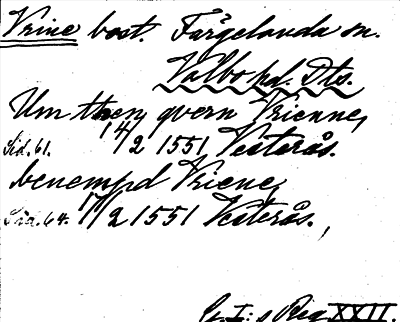 Vrine bost. Färgelanda sn.
Valbo hd. Dls.
Um then qvern Vrienne,
Sid. 61. 14/2 1551 Vesterås.
benempd Vriene,
Sid. 64. 17/2 1551 Vesterås.,
G. I: s Reg XXII.